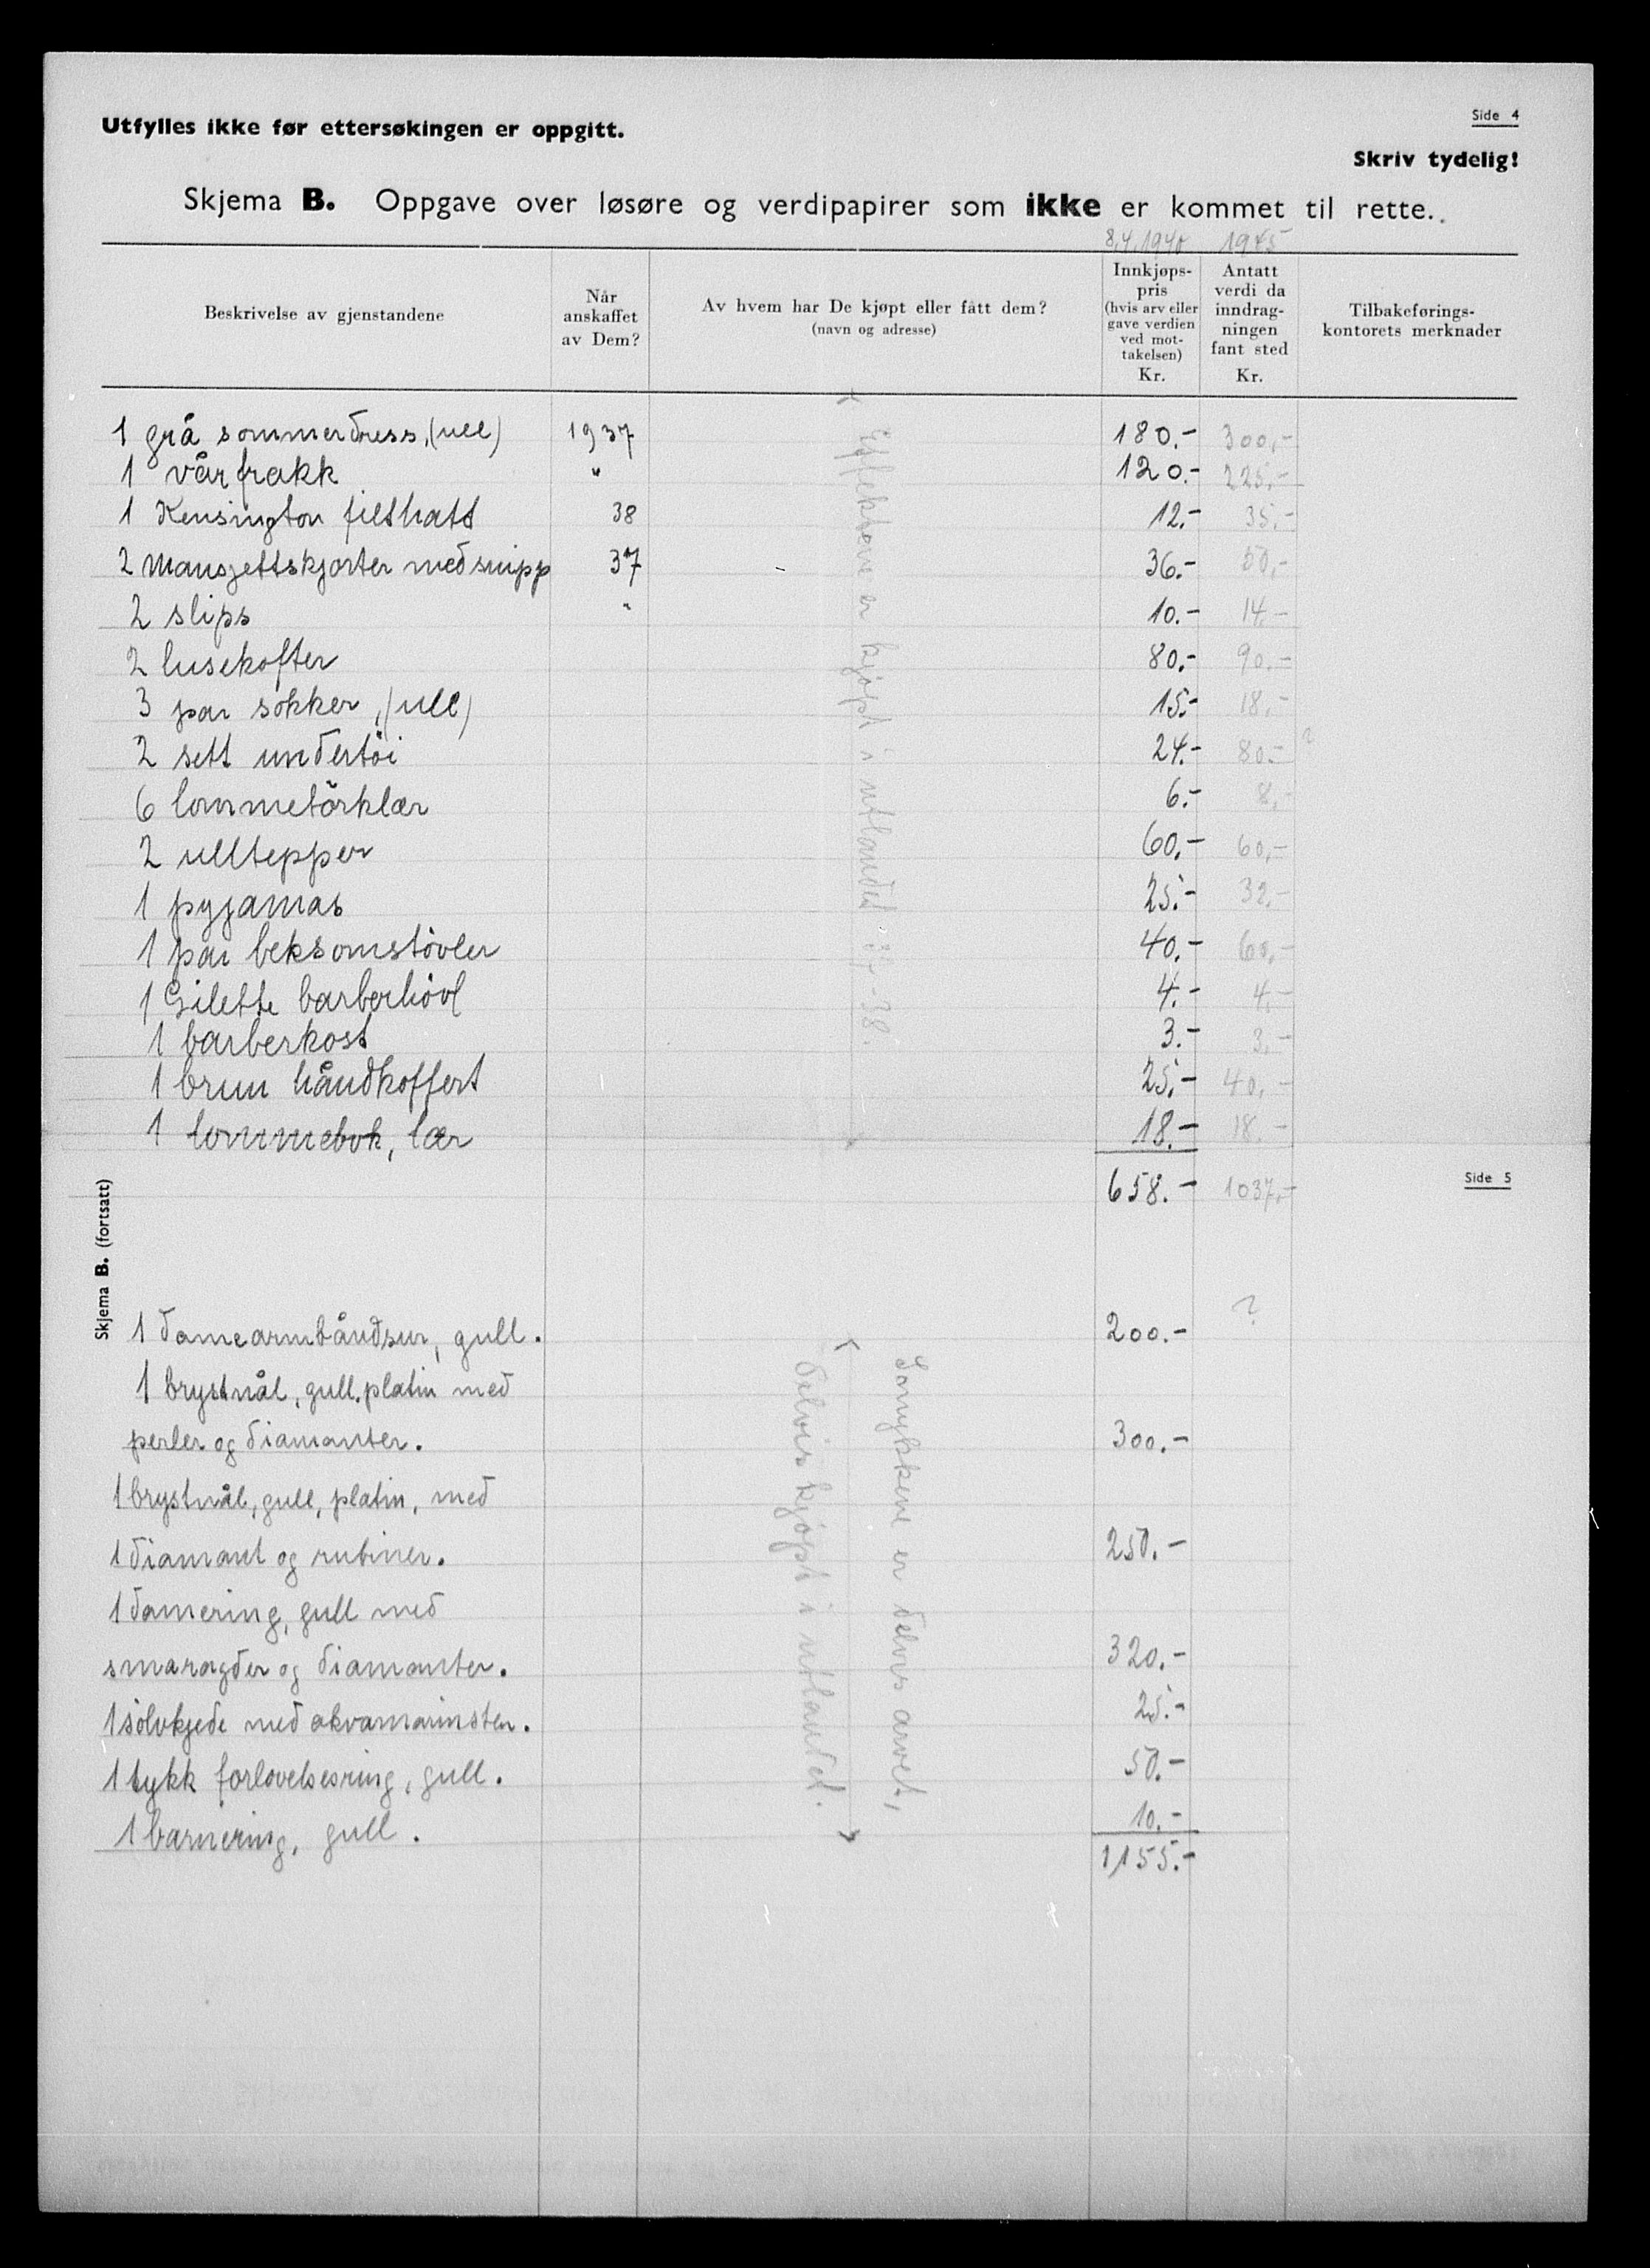 Side 4
Utfylles ikke før ettersøkingen er oppgitt.
Skriv tydelig!
Skjema B. Oppgave over løsøre og verdipapirer som ikke er kommet til rette.
8.4.1940 1945
Beskrivelse av gjenstandene
Når anskaffet av Dem?
Av hvem har De kjøpt eller fått dem? (navn og adresse)
Innkjøps-pris (hvis arv eller gave verdien ved mot-takelsen) Kr.
Antatt verdi da inndrag-ningen fant sted Kr.
Tilbakeførings-kontorets merknader
1 grå sommerdress, (ull) 1937 180.- 300,-
1 vårfrakk " 120.- 225,-
1 Kensington filthatt 38 12.- 35.-
2 Mansjettskjorter med snipp 37 36.- 50,-
2 slips " 10.- 14.-
2 lusekofter 80.- 90.-
3 par sokker, (ull) 15.- 18.-
2 sett undertöi 24.- 80.- ?
6 lommetörklær 6.- 8,-
2 ulltepper 60.- 60,-
1 pyjamas 25.- 32.-
1 par beksomstövler 40.- 60,-
1 Gilette barberhövl 4.- 4.-
1 barberkost 3.- 3.-
1 brun håndkoffert 25.- 40,-
1 lommebok, lær 18.- 18.-
658.- 1037,-
Effektene er kjøpt i utlandet 37-38.
Side 5
Skjema B. (fortsatt)
1 damearmbåndsur, gull. 200.- ?
1 brystnål, gull, platin med
perler og diamanter. 300.-
1 brystnål, gull, platin, med
1 diamant og rubiner. 250.-
1 damering, gull med
smaragder og diamanter. 320.-
1 sölvkjede med akvamarinsten. 25.-
1 tykk forlovelsesring, gull. 50.-
1 barnering, gull. 10.-
1155.-
Smykkene er delvis arvet,
delvis kjøpt i utlandet.